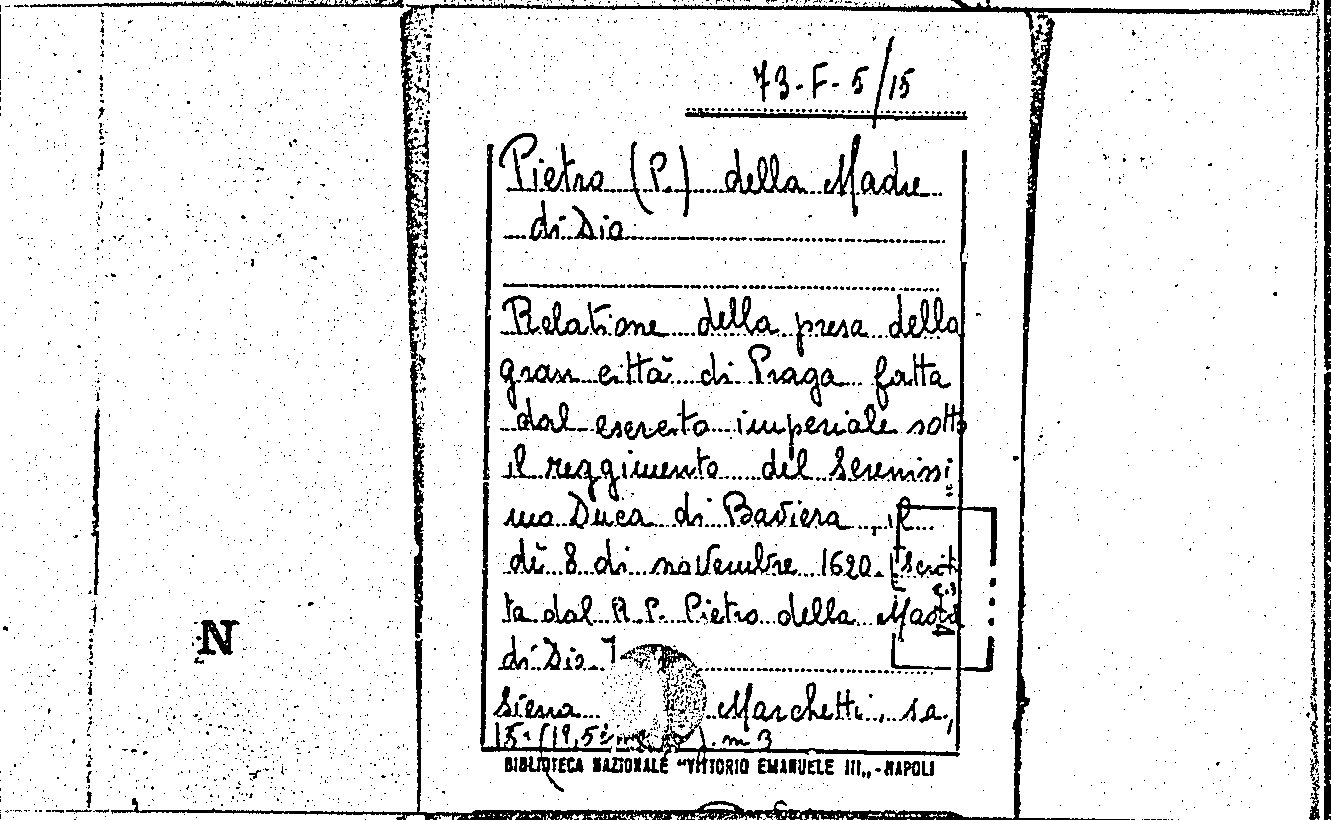 73-F-5/15
Pietro (P.) della Madre
di Dio
Relatione della presa della
gran città di Praga fatta
dal esercito imperiale sotto
il reggimento del Serenissi
mo Duca di Baviera, il
dì 8 di novembre 1620. [Scrit
ta dal R. P. Pietro della Madre
di Dio]
Siena Marchetti, s.a.,
N
BIBLIOTECA NAZIONALE "VITTORIO EMANUELE III„ - NAPOLI